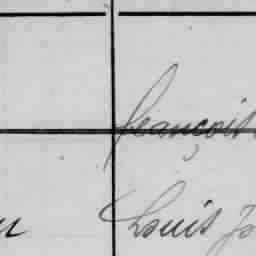 françois
u Louis Jo